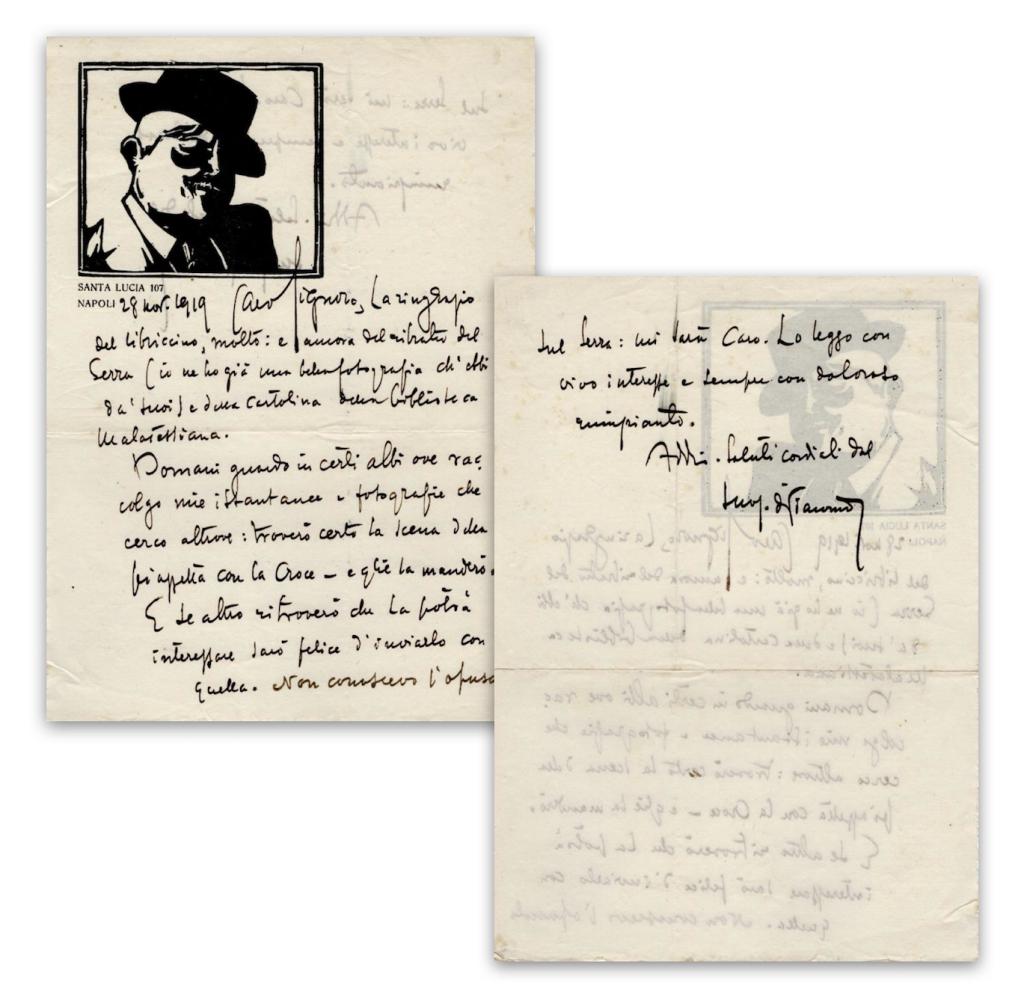 SANTA LUCIA 107
NAPOLI 28 nov. 1919 Caro Signore, La ringrazio
del libriccino, molto: e ancora del ritratto del
Serra (io ne ho già una bella fotografia ch'ebbi
da' suoi) e della Cartolina della biblioteca
Malatestiana.
Domani guardo in certi albi ove rac,
colgo mie istantanee e fotografie che
cerco altrove: troverò certo la scena della
con la Croce — e glie la manderò.
E se altro ritroverò che La potrà
interessare sarò felice d'inviarlo con
quella. Non conoscevo l'opusc
sul Serra: mi sarà Caro. Lo leggo con
vivo interesse e sempre con doloroso
rimpianto.
Addio. Saluti cordiali dal
Suo S. di Giacomo